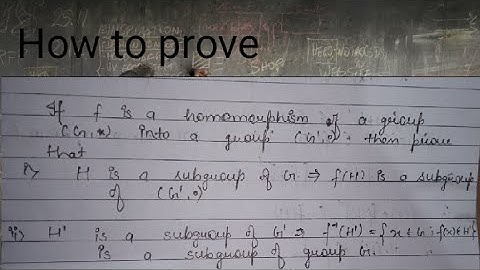 How to prove
If f is a homomorphism of a group
(G, *) into a group (G', o) then prove
that
i) H is a subgroup of G ⇒ f(H) is a subgroup
of (G', o)
ii) H' is a subgroup of G' ⇒ f⁻¹(H') = {x ∈ G : f(x) ∈ H'}
is a subgroup of group G.